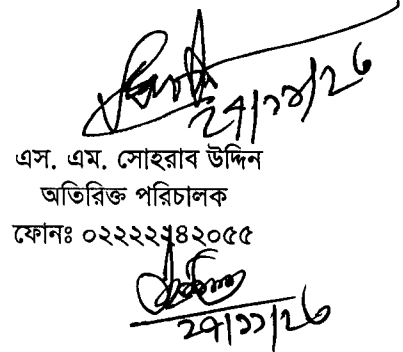 ২৭/১১/২৩
এস. এম. সোহরাব উদ্দিন
অতিরিক্ত পরিচালক
ফোনঃ ০২২২২২৪২০৫৫
২৭/১১/২৩